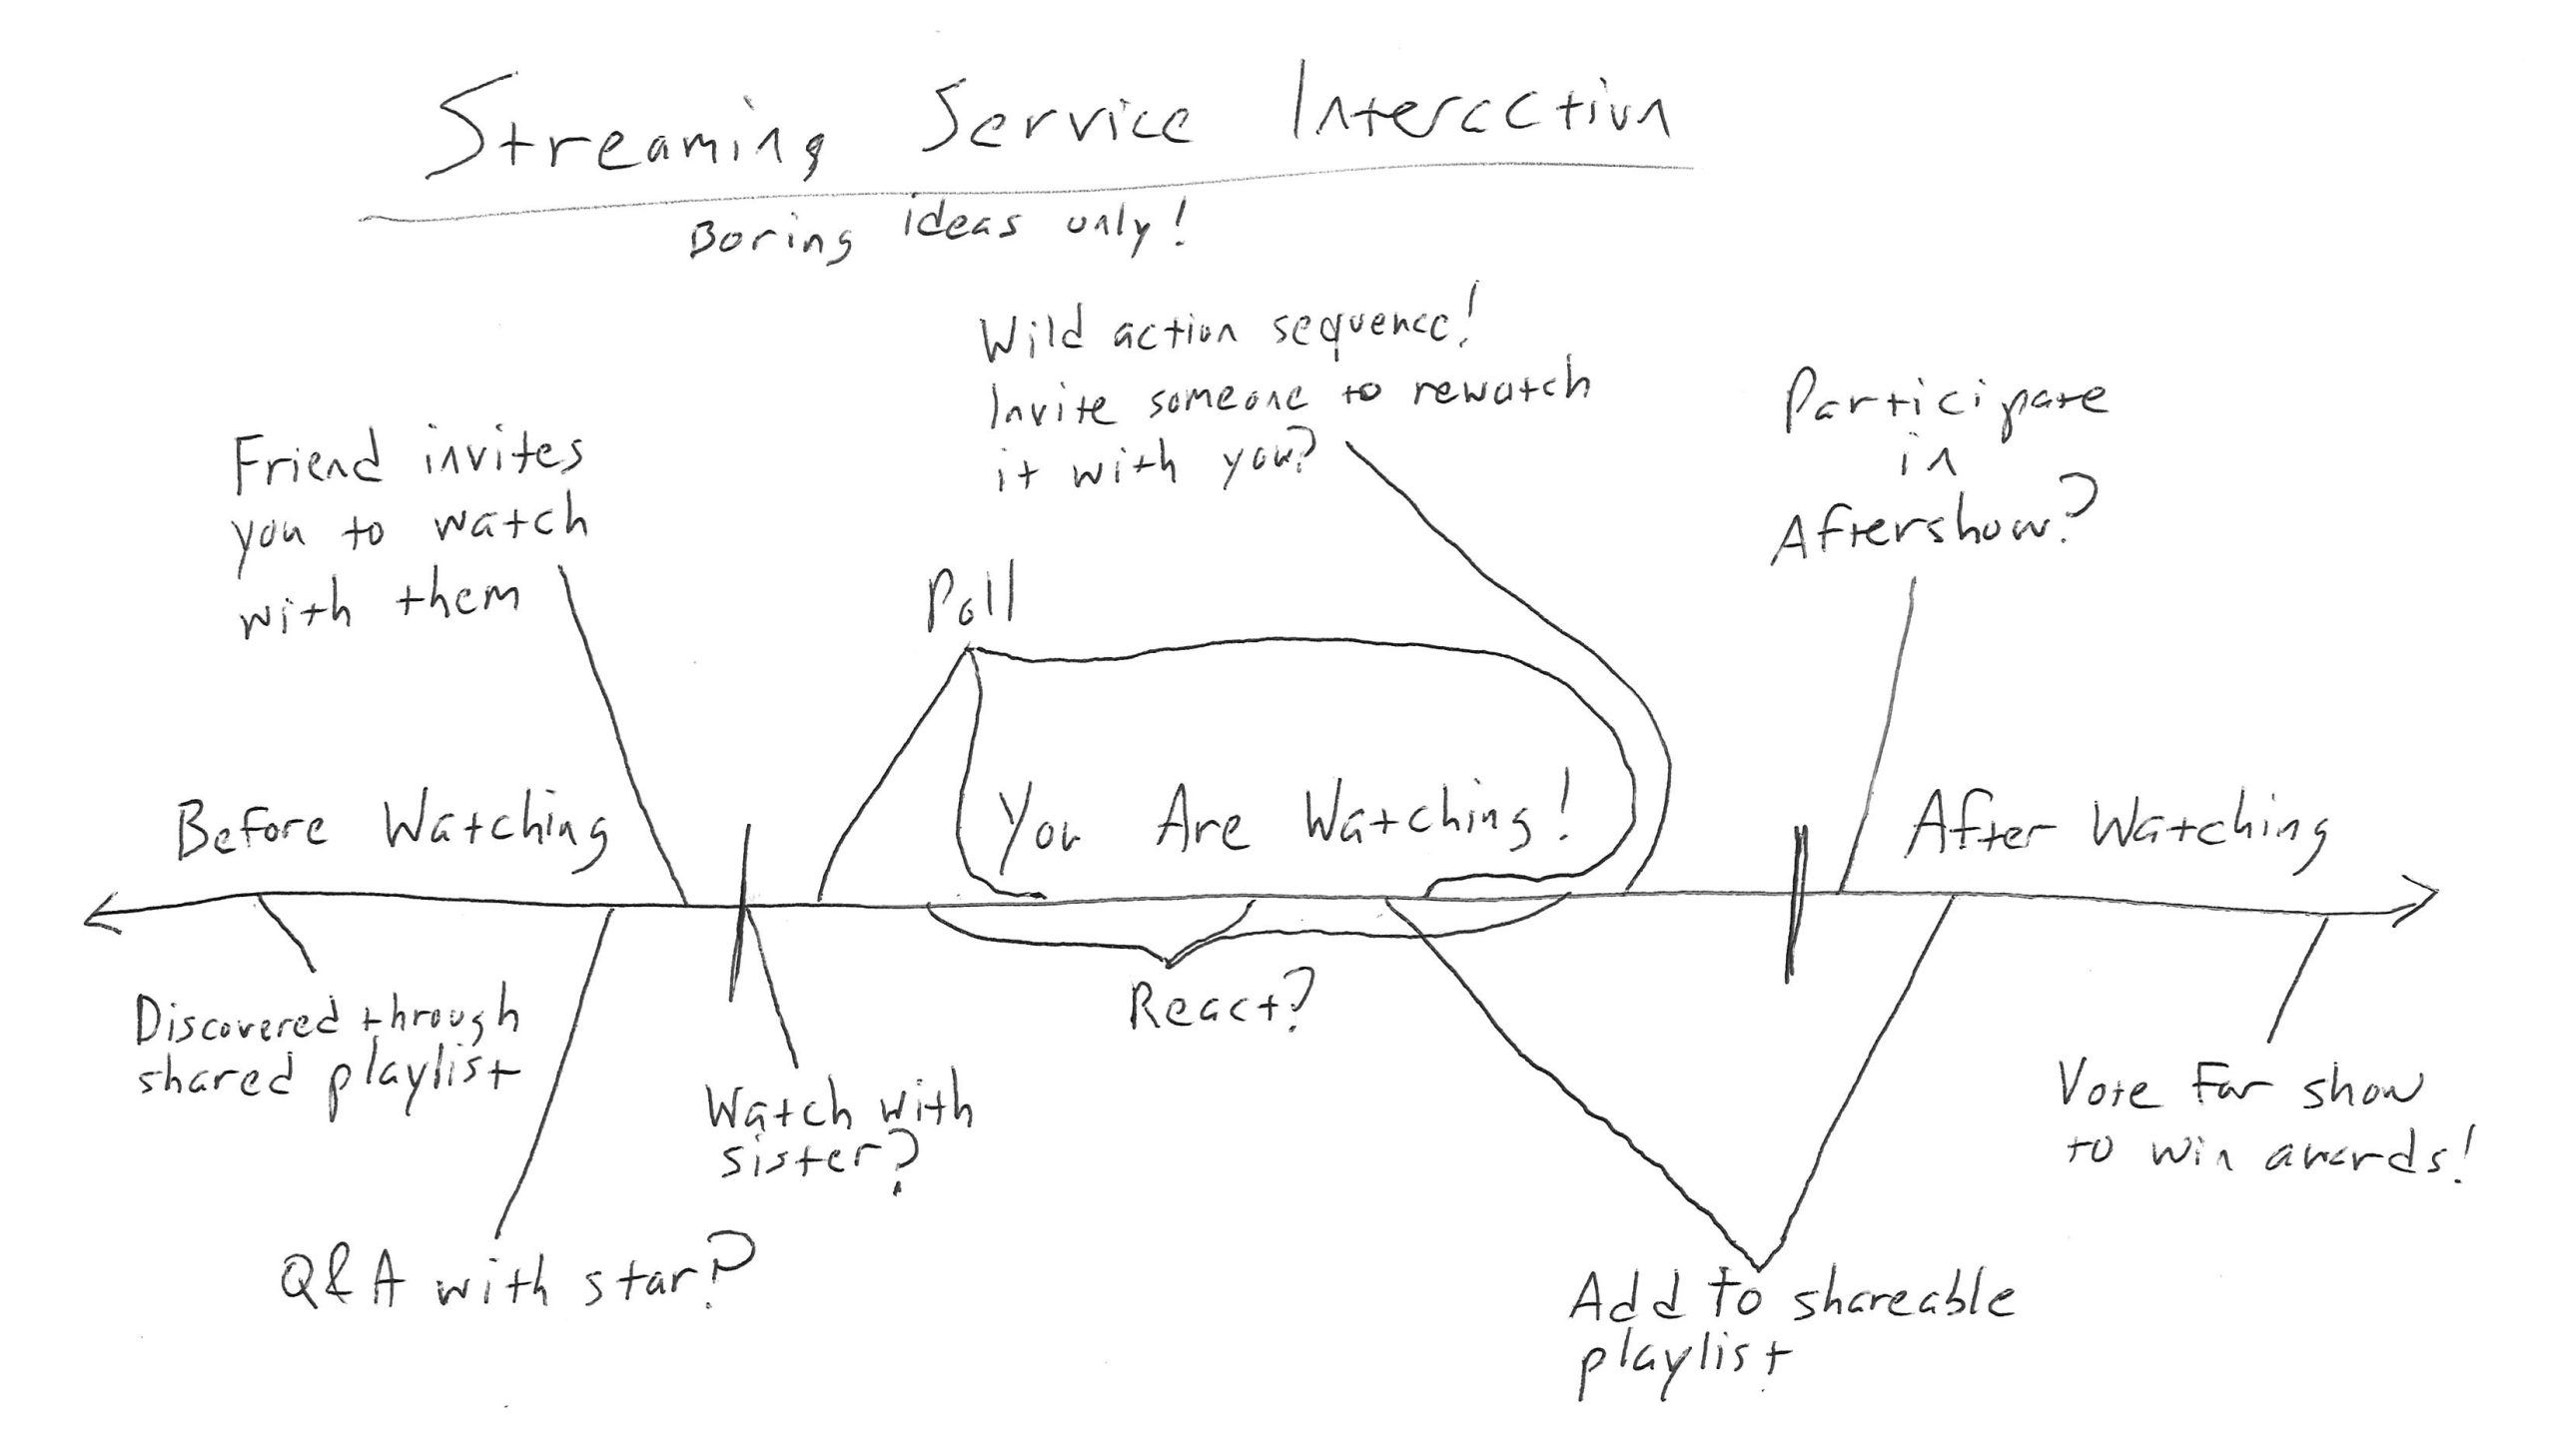 Streaming Service Interaction
Boring ideas only!
Wild action sequence!
Invite someone to rewatch
it with you?
Participate
in
Aftershow?
Friend invites
you to watch
with them
Poll
Before Watching
You Are Watching!
After Watching
Discovered through
shared playlist
React?
Watch with
sister?
Vote For show
to win awards!
Q&A with star?
Add to shareable
playlist